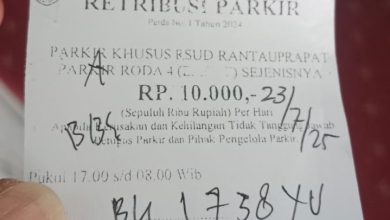 RETRIBUSI PARKIR
Perda No. 1 Tahun 2024
PARKIR KHUSUS RSUD RANTAUPRAPAT
A
PARKIR RODA 4 ( SEJENISNYA
RP. 10.000,- 23/7/25
(Sepuluh Ribu Rupiah) Per Hari
Kerusakan dan Kehilangan Tidak Tanggung Jawab
Petugas Parkir dan Pihak Pengelola Parkir.
Pukul 17.00 s/d 08.00 Wib
BK 1738 YU